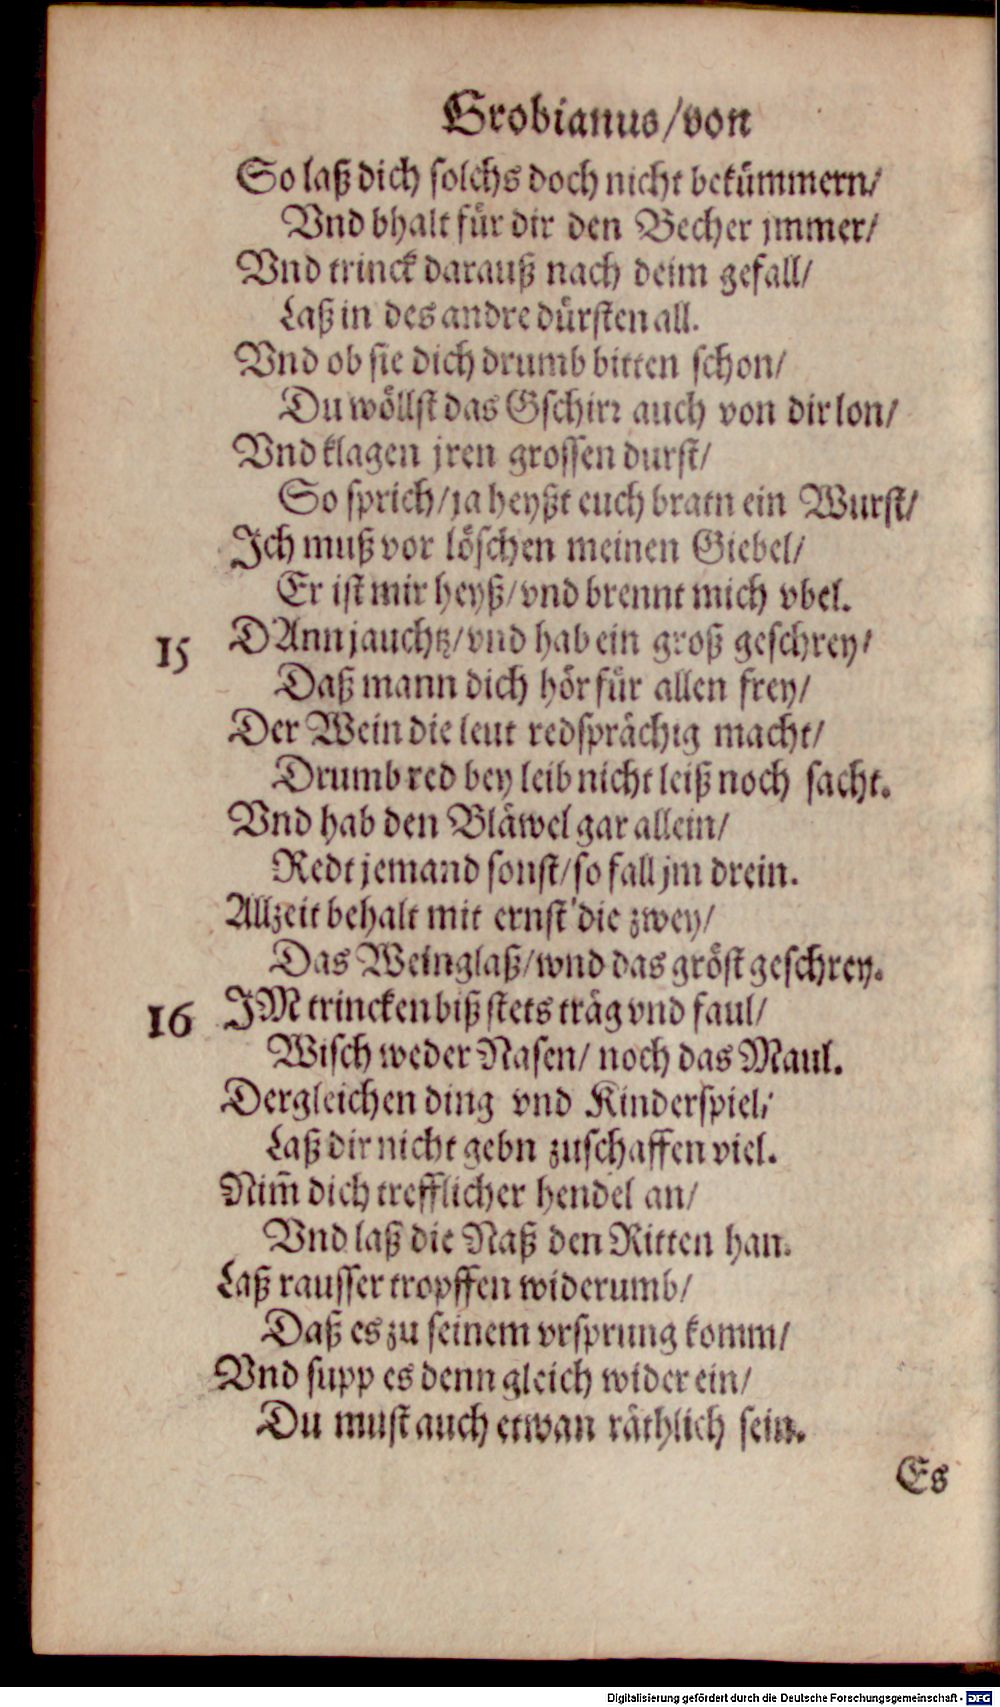 Grobianus/von
So laß dich solchs doch nicht bekümmern/
Vnd bhalt für dir den Becher jmmer/
Vnd trinck darauß nach deim gefall/
Laß in des andre dürsten all.
Vnd ob sie dich drumb bitten schon/
Du wöllst das Gschirr auch von dir lon/
Vnd klagen jren grossen durst/
So sprich/ja heyßt euch bratn ein Wurst/
Ich muß vor löschen meinen Giebel/
Er ist mir heyß/vnd brennt mich vbel.
15 DAnn jauchtz/vnd hab ein groß geschrey/
Daß mann dich hör für allen frey/
Der Wein die leut redsprächig macht/
Drumb red bey leib nicht leiß noch sacht.
Vnd hab den Bläwel gar allein/
Redt jemand sonst/so fall jm drein.
Allzeit behalt mit ernst die zwey/
Das Weinglaß/wnd das gröst geschrey.
16 IM trincken biß stets träg vnd faul/
Wisch weder Nasen/ noch das Maul.
Dergleichen ding vnd Kinderspiel/
Laß dir nicht gebn zuschaffen viel.
Nim̃ dich trefflicher hendel an/
Vnd laß die Naß den Ritten han.
Laß rausser tropffen widerumb/
Daß es zu seinem vrsprung komm/
Vnd supp es denn gleich wider ein/
Du must auch etwan räthlich sein.
Es
Digitalisierung gefördert durch die Deutsche Forschungsgemeinschaft - DFG